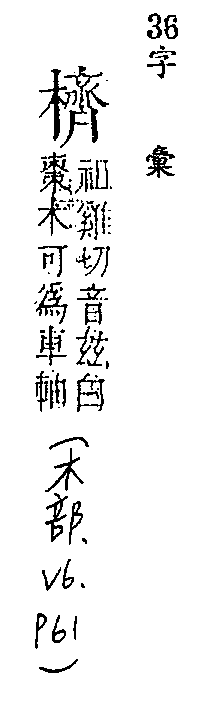 36字 彙
櫅
祖雞切音玆白
棗木可爲車軸
(木部.v6.p61)